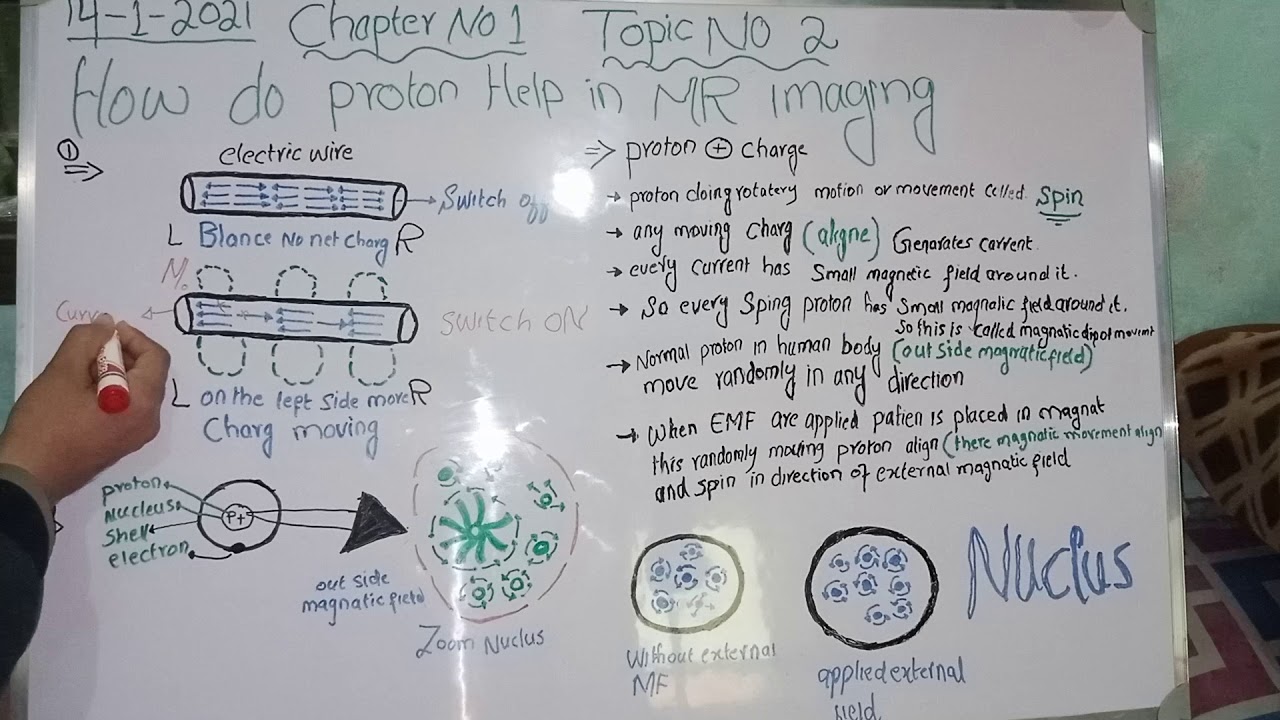 14-1-2021 Chapter No 1 Topic No 2
How do proton Help in MR imaging
①
electric wire
Switch off
L Blance No net charg R
N.
Curv
Switch ON
L on the left side move R
Charg moving
proton
Nucleus
Shell
electron
P+
out side
magnatic field
Zoom Nuclus
⇒ proton ⊕ charge
→ proton doing rotatery motion or movement called Spin
→ any moving Charg (aligne) Genarates current
→ every current has Small magnetic field around it.
→ So every Sping proton has Small magnatic field around it.
So this is called magnatic dipol movimt
→ Normal proton in human body (out side magnatic field)
move randomly in any direction
→ When EMF are applied patien is placed in magnat
this randomly moving proton align (there magnatic movement align
and spin in direction of external magnatic field
Without external
MF
applied external
field
Nuclus